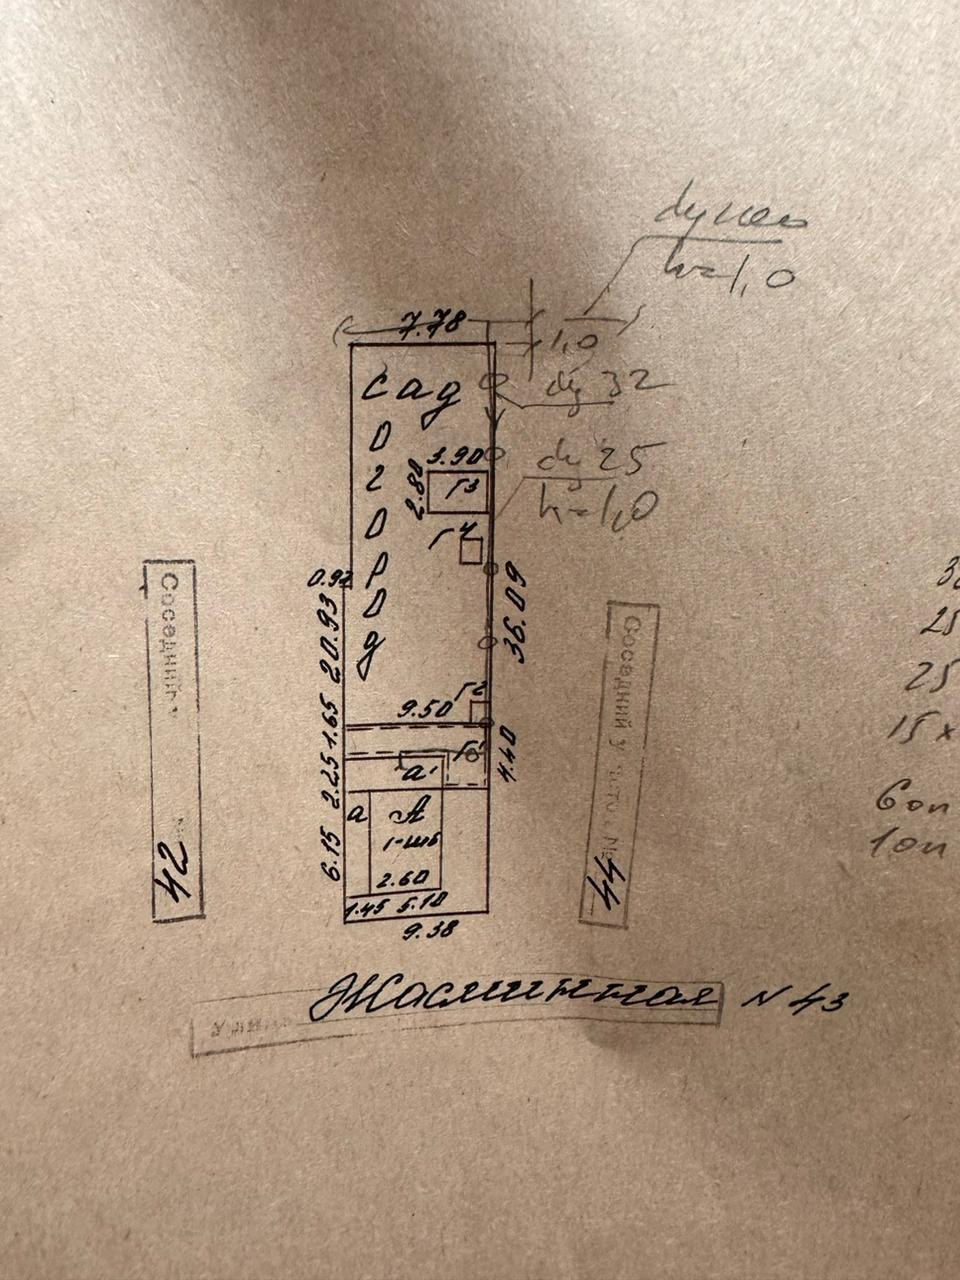 h=1,0
7.78
1,0
dy 32
сад
огород
3.90
2.80
Г3
dy 25
h=1,0
Г4
0.92
20.93
36.09
Г2
9.50
1.65
Г1
4.40
2.25
а'
а
А
6.15
2.60
1.45 5.10
9.38
Соседний
42
Соседний
44
25
25
15 x
6 оп
1 оп
Жасминная N 43